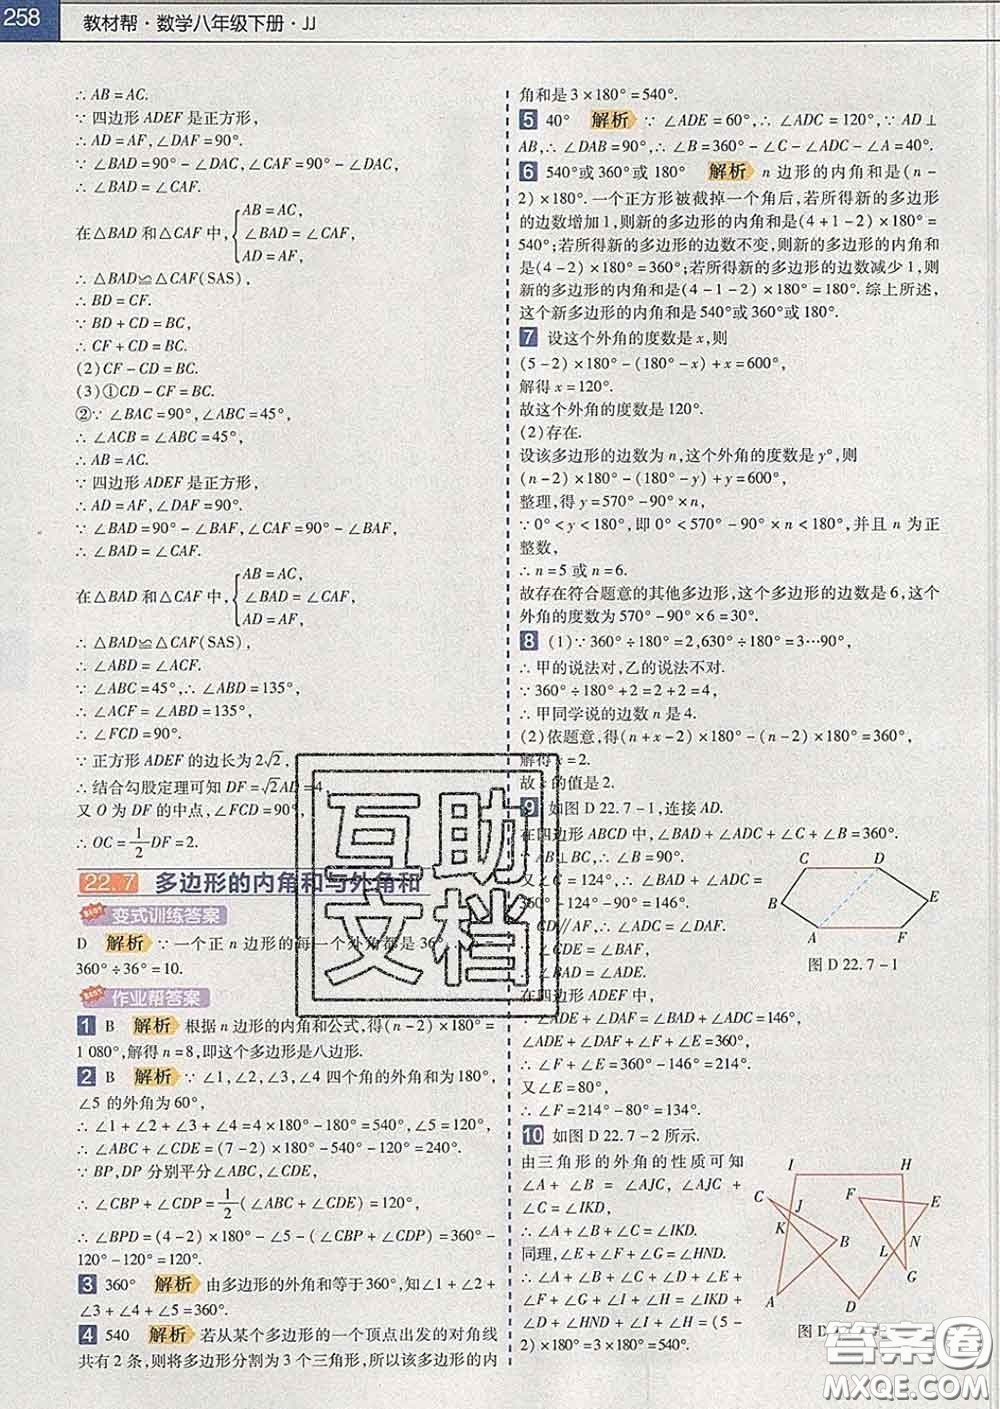 258 教材帮·数学八年级下册·JJ
∴ AB = AC.
∵ 四边形 ADEF 是正方形,
∴ AD = AF, ∠DAF = 90°.
∵ ∠BAD = 90° - ∠DAC, ∠CAF = 90° - ∠DAC,
∴ ∠BAD = ∠CAF.
AB = AC,
在△BAD 和△CAF 中, ∠BAD = ∠CAF,
AD = AF,
∴ △BAD≌△CAF(SAS),
∴ BD = CF.
∵ BD + CD = BC,
∴ CF + CD = BC.
(2) CF - CD = BC.
(3) ①CD - CF = BC.
②∵ ∠BAC = 90°, ∠ABC = 45°,
∴ ∠ACB = ∠ABC = 45°,
∴ AB = AC.
∵ 四边形 ADEF 是正方形,
∴ AD = AF, ∠DAF = 90°.
∵ ∠BAD = 90° - ∠BAF, ∠CAF = 90° - ∠BAF,
∴ ∠BAD = ∠CAF.
AB = AC,
在△BAD 和△CAF 中, ∠BAD = ∠CAF,
AD = AF,
∴ △BAD≌△CAF(SAS),
∴ ∠ABD = ∠ACF.
∵ ∠ABC = 45°, ∴ ∠ABD = 135°,
∴ ∠ACF = ∠ABD = 135°,
∴ ∠FCD = 90°.
∵ 正方形 ADEF 的边长为 2√2,
∴ 结合勾股定理可知 DF = √2AD = 4,
又 O 为 DF 的中点, ∠FCD = 90°,
∴ OC = 1/2 DF = 2.
22.7 多边形的内角和与外角和
变式训练答案
D 解析 ∵ 一个正 n 边形的每一个外角都是 36°,
360° ÷ 36° = 10.
作业帮答案
1 B 解析 根据 n 边形的内角和公式,得 (n - 2) × 180° =
1 080°,解得 n = 8,即这个多边形是八边形.
2 B 解析 ∵ ∠1, ∠2, ∠3, ∠4 四个角的外角和为 180°,
∠5 的外角为 60°,
∴ ∠1 + ∠2 + ∠3 + ∠4 = 4 × 180° - 180° = 540°, ∠5 = 120°,
∴ ∠ABC + ∠CDE = (7 - 2) × 180° - 540° - 120° = 240°.
∵ BP, DP 分别平分∠ABC, ∠CDE,
∴ ∠CBP + ∠CDP = 1/2 (∠ABC + ∠CDE) = 120°,
∴ ∠BPD = (4 - 2) × 180° - ∠5 - (∠CBP + ∠CDP) = 360° -
120° - 120° = 120°.
3 360° 解析 由多边形的外角和等于 360°,知∠1 + ∠2 +
∠3 + ∠4 + ∠5 = 360°.
4 540 解析 若从某个多边形的一个顶点出发的对角线
共有 2 条,则将多边形分割为 3 个三角形,所以该多边形的内
角和是 3 × 180° = 540°.
5 40° 解析 ∵ ∠ADE = 60°, ∴ ∠ADC = 120°, ∵ AD ⊥
AB, ∴ ∠DAB = 90°, ∴ ∠B = 360° - ∠C - ∠ADC - ∠A = 40°.
6 540°或 360°或 180° 解析 n 边形的内角和是 (n -
2) × 180°. 一个正方形被截掉一个角后,若所得新的多边形
的边数增加 1,则新的多边形的内角和是 (4 + 1 - 2) × 180° =
540°;若所得新的多边形的边数不变,则新的多边形的内角和
是 (4 - 2) × 180° = 360°;若所得新的多边形的边数减少 1,则
新的多边形的内角和是 (4 - 1 - 2) × 180° = 180°. 综上所述,
这个新多边形的内角和是 540°或 360°或 180°.
7 设这个外角的度数是 x,则
(5 - 2) × 180° - (180° - x) + x = 600°,
解得 x = 120°.
故这个外角的度数是 120°.
(2) 存在.
设该多边形的边数为 n,这个外角的度数是 y°,则
(n - 2) × 180° - (180° - y) + y = 600°,
整理,得 y = 570° - 90° × n,
∵ 0° < y < 180°,即 0° < 570° - 90° × n < 180°,并且 n 为正
整数,
∴ n = 5 或 n = 6.
故存在符合题意的其他多边形,这个多边形的边数是 6,这个
外角的度数为 570° - 90° × 6 = 30°.
8 (1) ∵ 360° ÷ 180° = 2, 630° ÷ 180° = 3…90°,
∴ 甲的说法对,乙的说法不对.
∵ 360° ÷ 180° + 2 = 2 + 2 = 4,
∴ 甲同学说的边数 n 是 4.
(2) 依题意,得 (n + x - 2) × 180° - (n - 2) × 180° = 360°,
解得 x = 2.
故 x 的值是 2.
9 如图 D 22.7-1,连接 AD.
在四边形 ABCD 中, ∠BAD + ∠ADC + ∠C + ∠B = 360°.
∵ AB⊥BC, ∴ ∠B = 90°.
又∠C = 124°, ∴ ∠BAD + ∠ADC =
360° - 124° - 90° = 146°.
∵ CD∥AF, ∴ ∠CDA = ∠DAF.
∵ ∠CDE = ∠BAF,
∴ ∠BAD = ∠ADE.
在四边形 ADEF 中,
∵ ∠ADE + ∠DAF = ∠BAD + ∠ADC = 146°,
∠ADE + ∠DAF + ∠F + ∠E = 360°,
∴ ∠F + ∠E = 360° - 146° = 214°.
又∠E = 80°,
∴ ∠F = 214° - 80° = 134°.
C D B E A F
图 D 22.7-1
10 如图 D 22.7-2 所示.
由三角形的外角的性质可知
∠A + ∠B = ∠AJC, ∠AJC +
∠C = ∠IKD,
∴ ∠A + ∠B + ∠C = ∠IKD.
同理, ∠E + ∠F + ∠G = ∠HND.
∴ ∠A + ∠B + ∠C + ∠D + ∠E +
∠F + ∠G + ∠I + ∠H = ∠IKD +
∠D + ∠HND + ∠I + ∠H = (5 -
2) × 180° = 3 × 180° = 540°.
I H C J F E K B L N G A D
图 D
互助
文档
答案圈
MXQE.COM